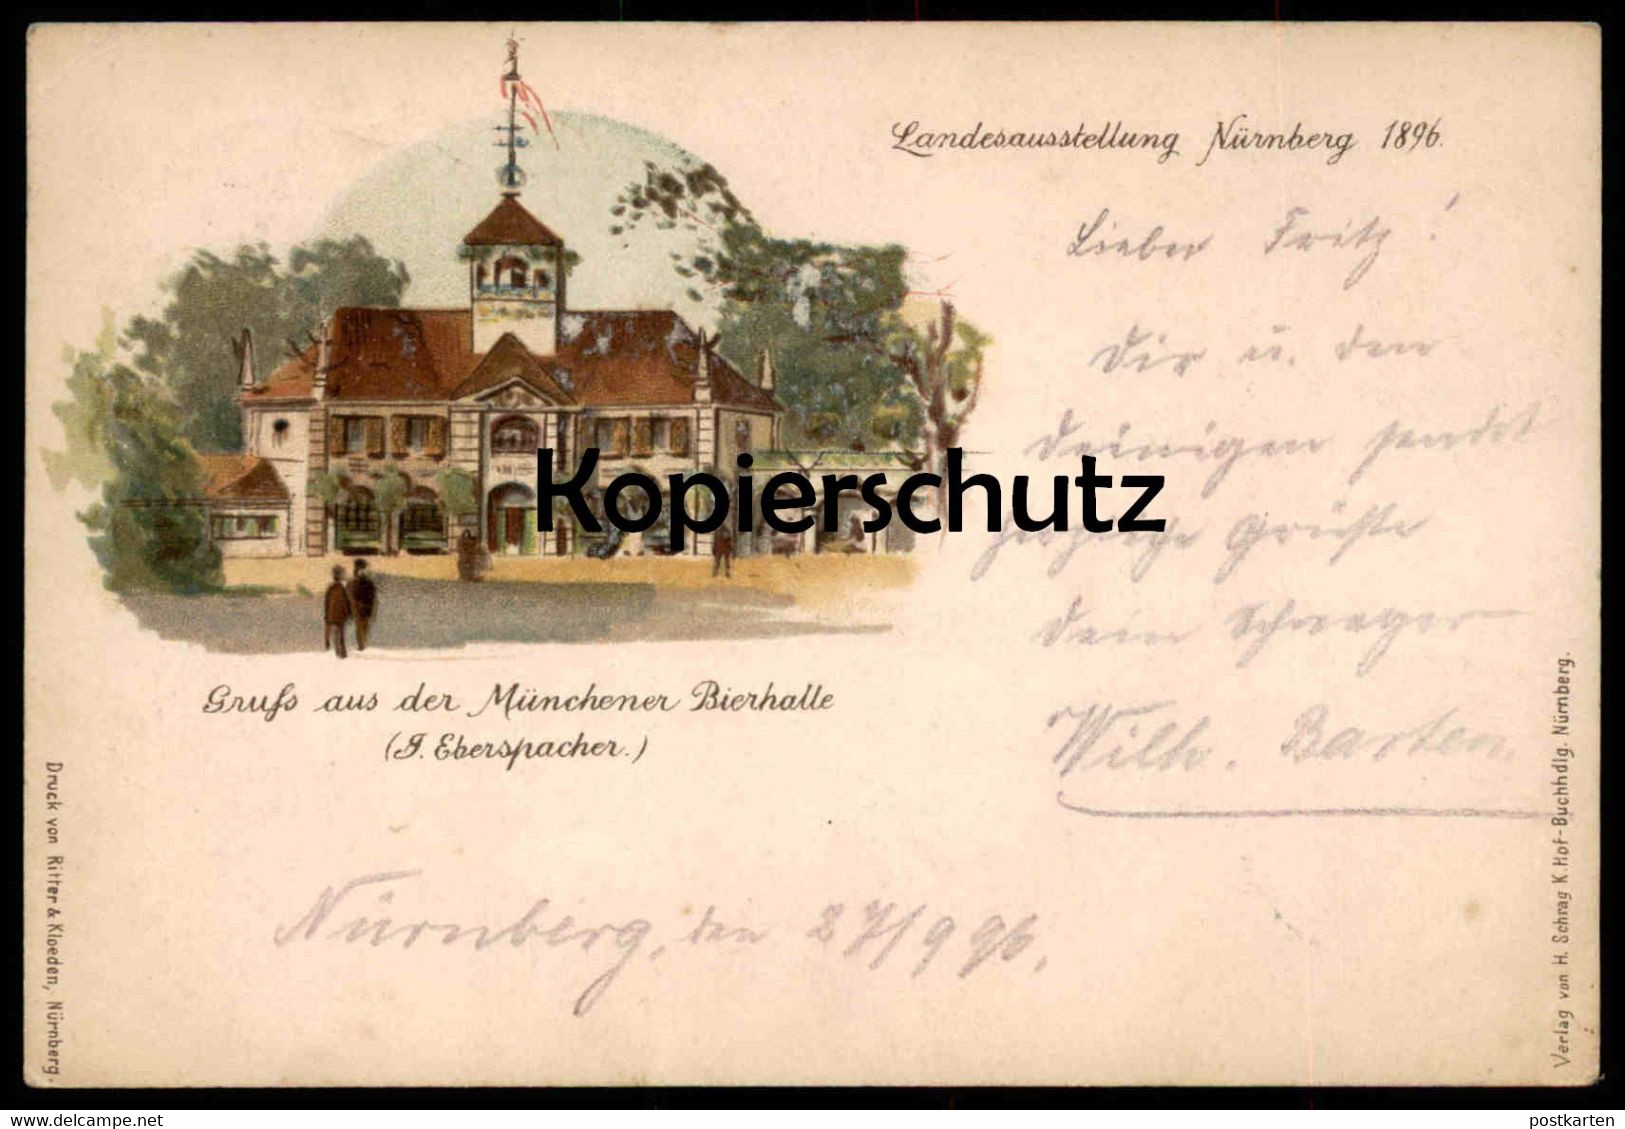 Landesausstellung Nürnberg 1896.
Lieber Fritz!
Dir u. den
Deinigen sendet
herzliche Grüße
Dein Schwager
Wilh. Barten.
Kopierschutz
Gruſs aus der Münchener Bierhalle
(J. Eberspacher.)
Nürnberg, den 27/9 96.
Druck von Ritter & Kloeden, Nürnberg.
Verlag von H. Schrag K. Hof-Buchhdlg. Nürnberg.
www.delcampe.net
postkarten